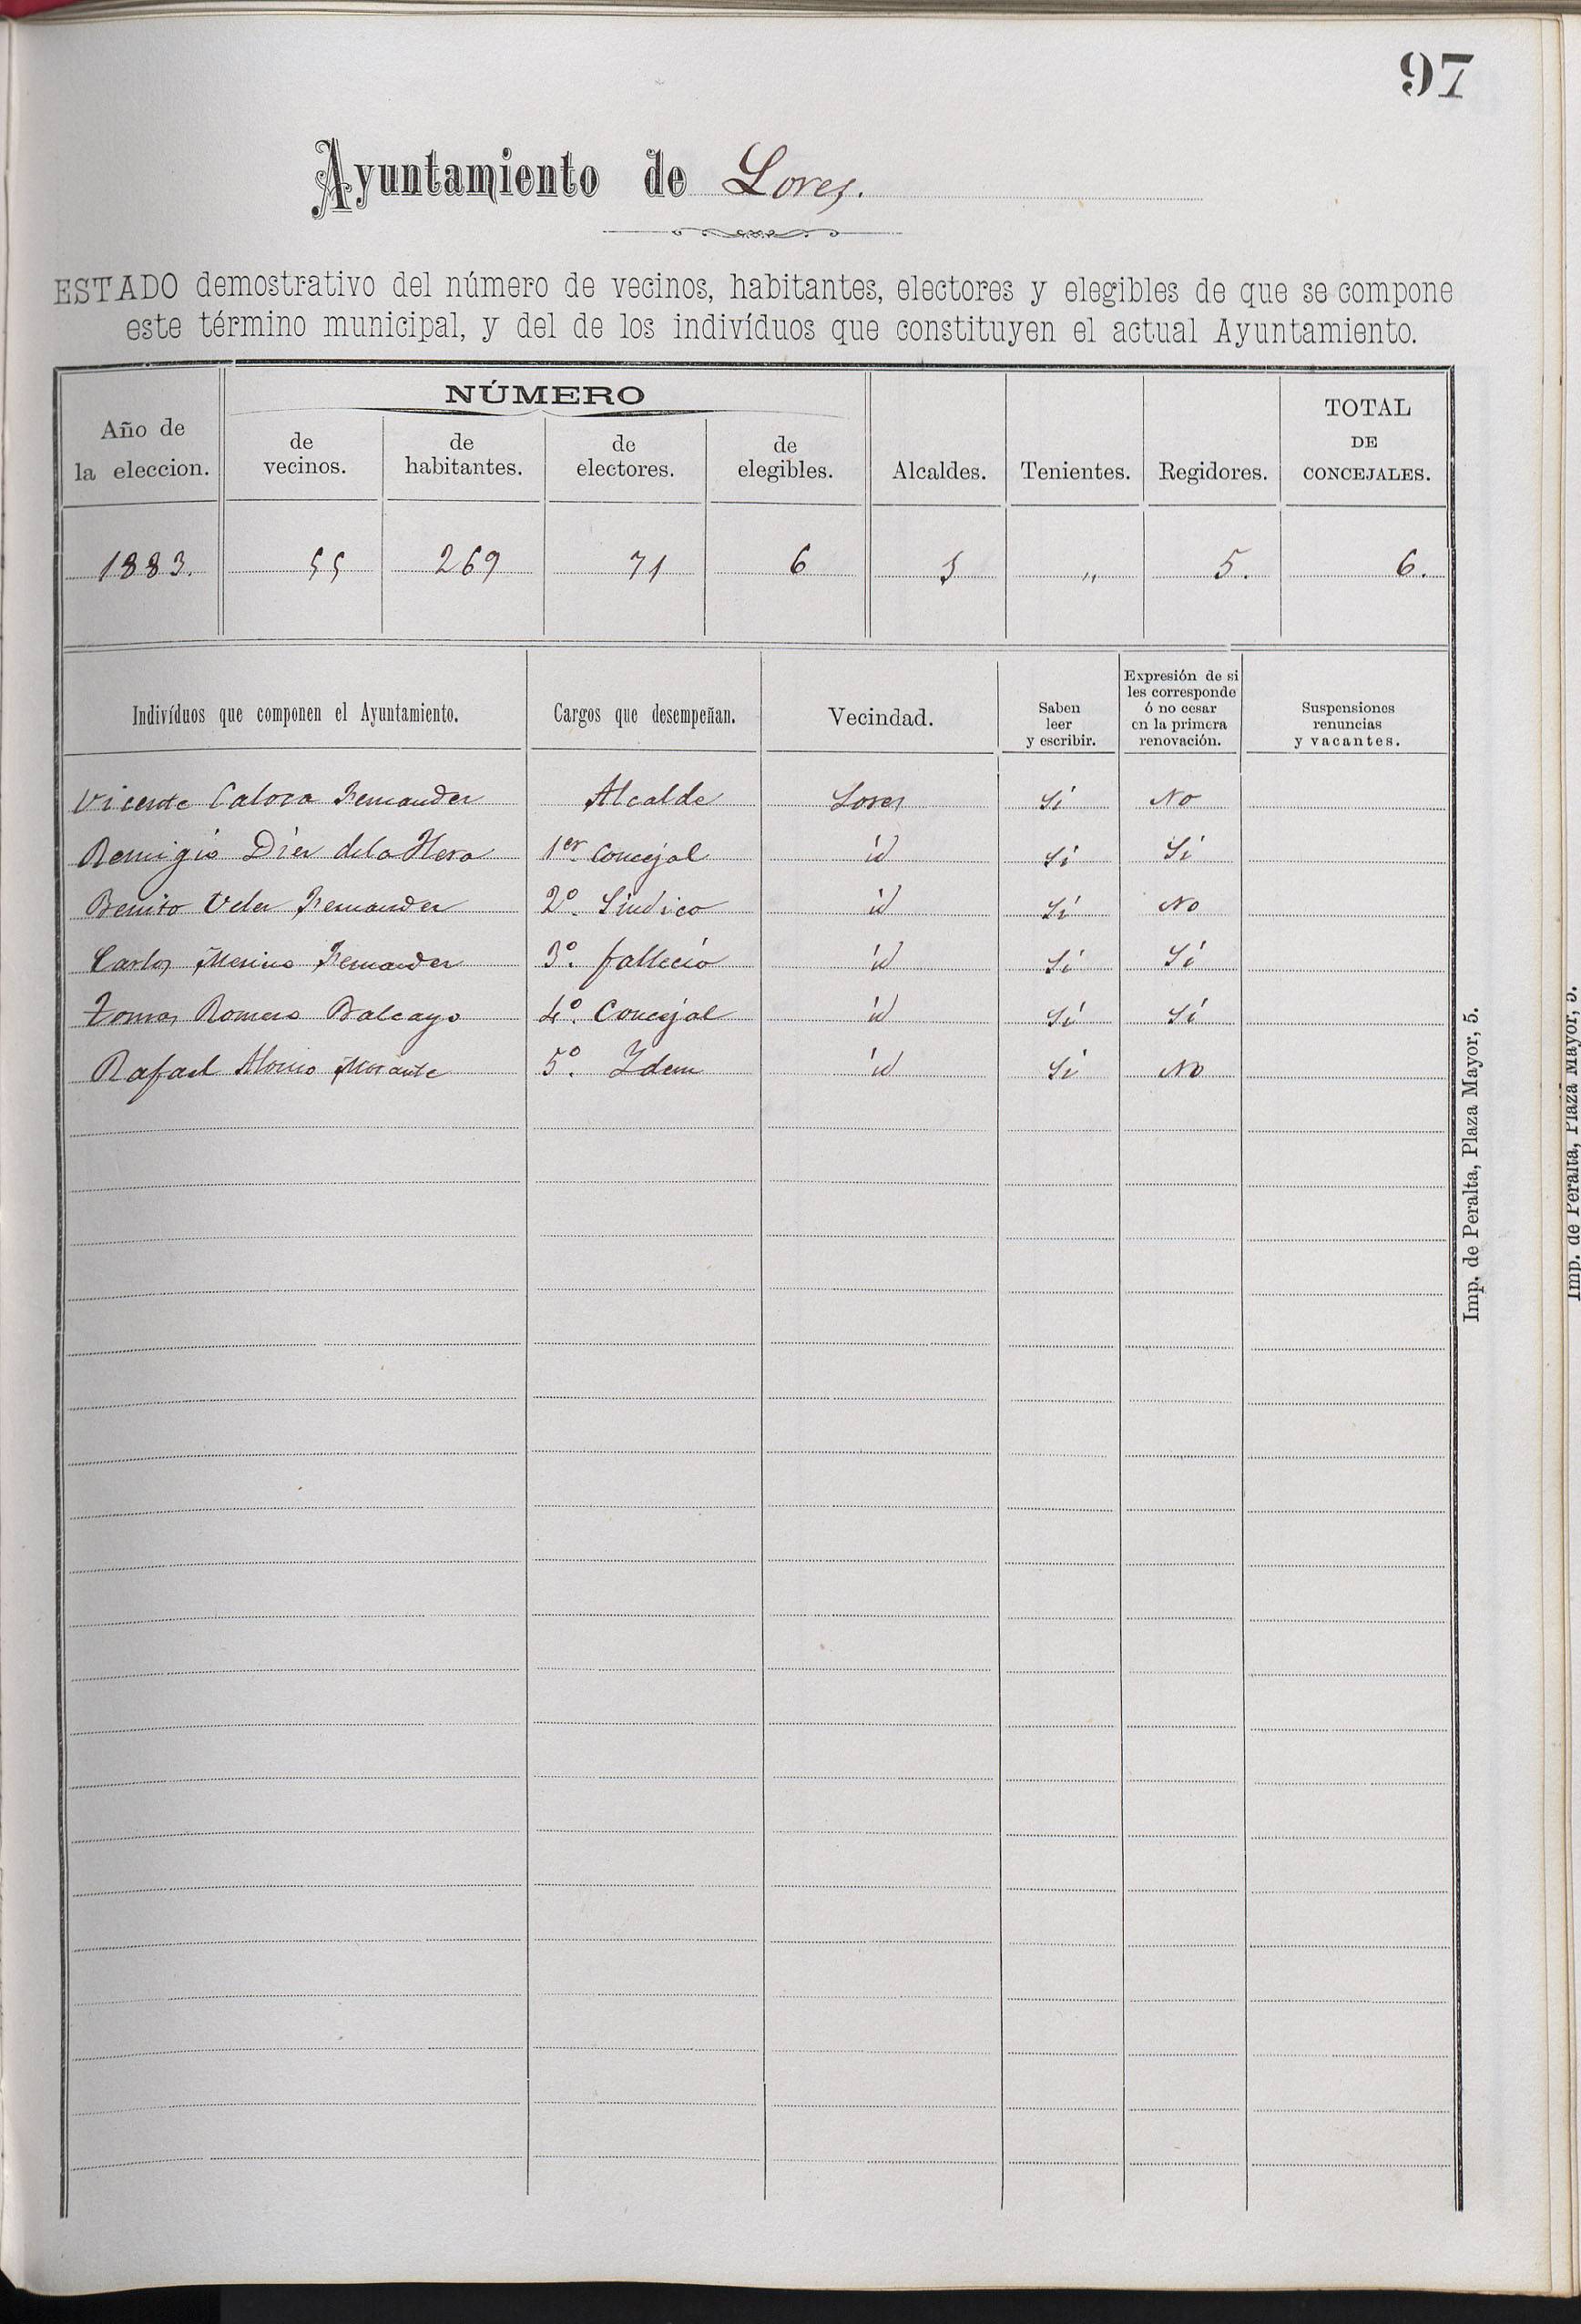 97
Ayuntamiento de Lores.
ESTADO demostrativo del número de vecinos, habitantes, electores y elegibles de que se compone
este término municipal, y del de los indivíduos que constituyen el actual Ayuntamiento.
Año de la eleccion. NÚMERO de vecinos. de habitantes. de electores. de elegibles. Alcaldes. Tenientes. Regidores. TOTAL DE CONCEJALES.
1883. 55 269 71 6 1 " 5. 6.
Indivíduos que componen el Ayuntamiento. Cargos que desempeñan. Vecindad. Saben leer y escribir. Expresión de si les corresponde ó no cesar en la primera renovación. Suspensiones renuncias y vacantes.
Vicente Caloca Fernandez Alcalde Lores Sí No
Remigio Diez de la Hera 1er Concejal id Sí Sí
Benito Velez Fernandez 2º. Síndico id Sí No
Carlos Merino Fernandez 3º. falleció id Sí Sí
Tomas Romero 4º. Concejal id Sí Sí
Rafael Alonso Morante 5º. Idem id Sí No
Imp. de Peralta, Plaza Mayor, 5.
Imp. de Peralta, Plaza Mayor, 5.